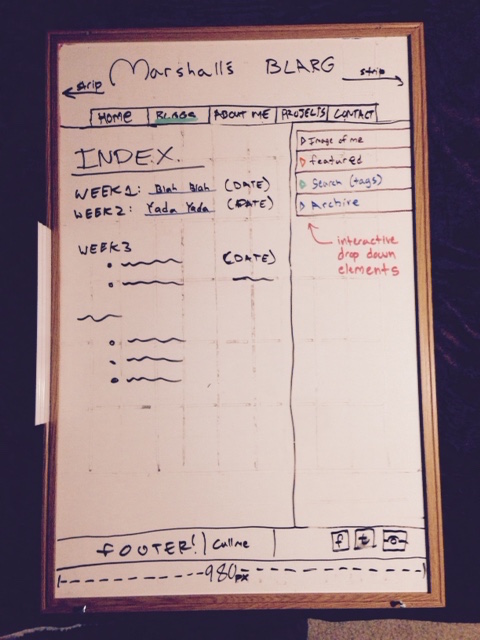 Marshall's BLARG
strip
strip
HOME BLAGS ABOUT ME PROJECTS CONTACT
INDEX
WEEK 1: Blah Blah (DATE)
WEEK 2: Yada Yada (DATE)
WEEK 3
(DATE)
Image of me
featured
Search (tags)
Archive
interactive
drop down
elements
FOOTER! Call me
f t
980px